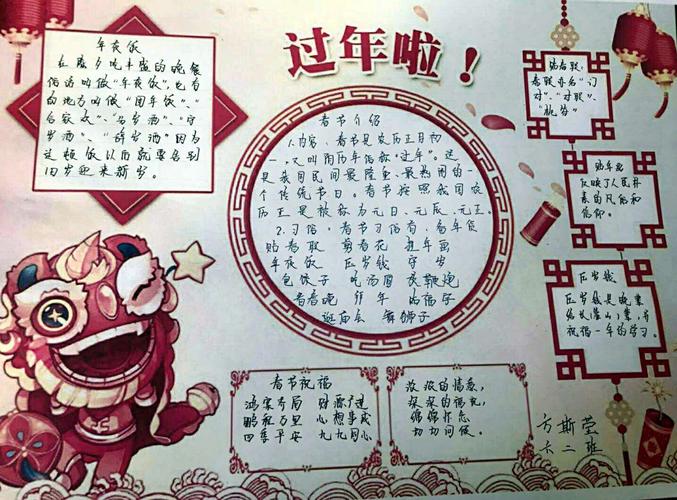 过年啦！
年夜饭
在除夕吃丰盛的晚餐
俗话叫做"年夜饭",也有
的地方叫做"团年饭"、"
合家欢"、"分岁酒"、"守
岁酒"、"辞岁酒"因为
这顿饭以后就要告别
旧岁迎来新岁。
春节介绍
1.内容：春节是农历正月初
一,又叫阴历年俗称"过年"。这
是我国民间最隆重、最热闹的一
个传统节日。春节按照我国农
历正是被称为元日、元辰、元正。
2.习俗：春节习俗有：备年货
贴春联 剪春花 挂年画
年夜饭 压岁钱 守岁
包饺子 吃汤圆 放鞭炮
看春晚 拜年 贴福字
逛庙会 舞狮子
贴春联,
春联亦名"门
对"、"对联"、
"桃符"
贴年画
反映了人民朴
素的风俗和
信仰。
压岁钱
压岁钱是晚辈
给长辈
祝福一年的学习。
春节祝福
鸿案齐眉 财源广进
鹏程万里 心想事成
四季平安 九九同心
浓浓的情意,
深深的福礼,
绵绵怀恋
切切问候。
方斯莹
六二班